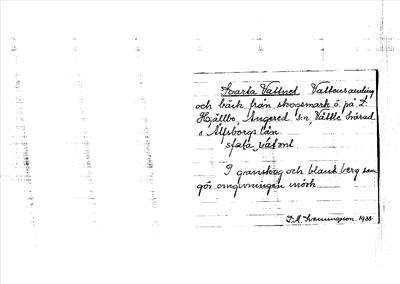 Svarta Vattnet Vattensamling
och bäck från skogsmark ö. på L.
Hjällbo, Angered s:n, Vättle härad
i Älfsborgs län.

I granskog och bland berg som
gör omgivningen mörk
1938